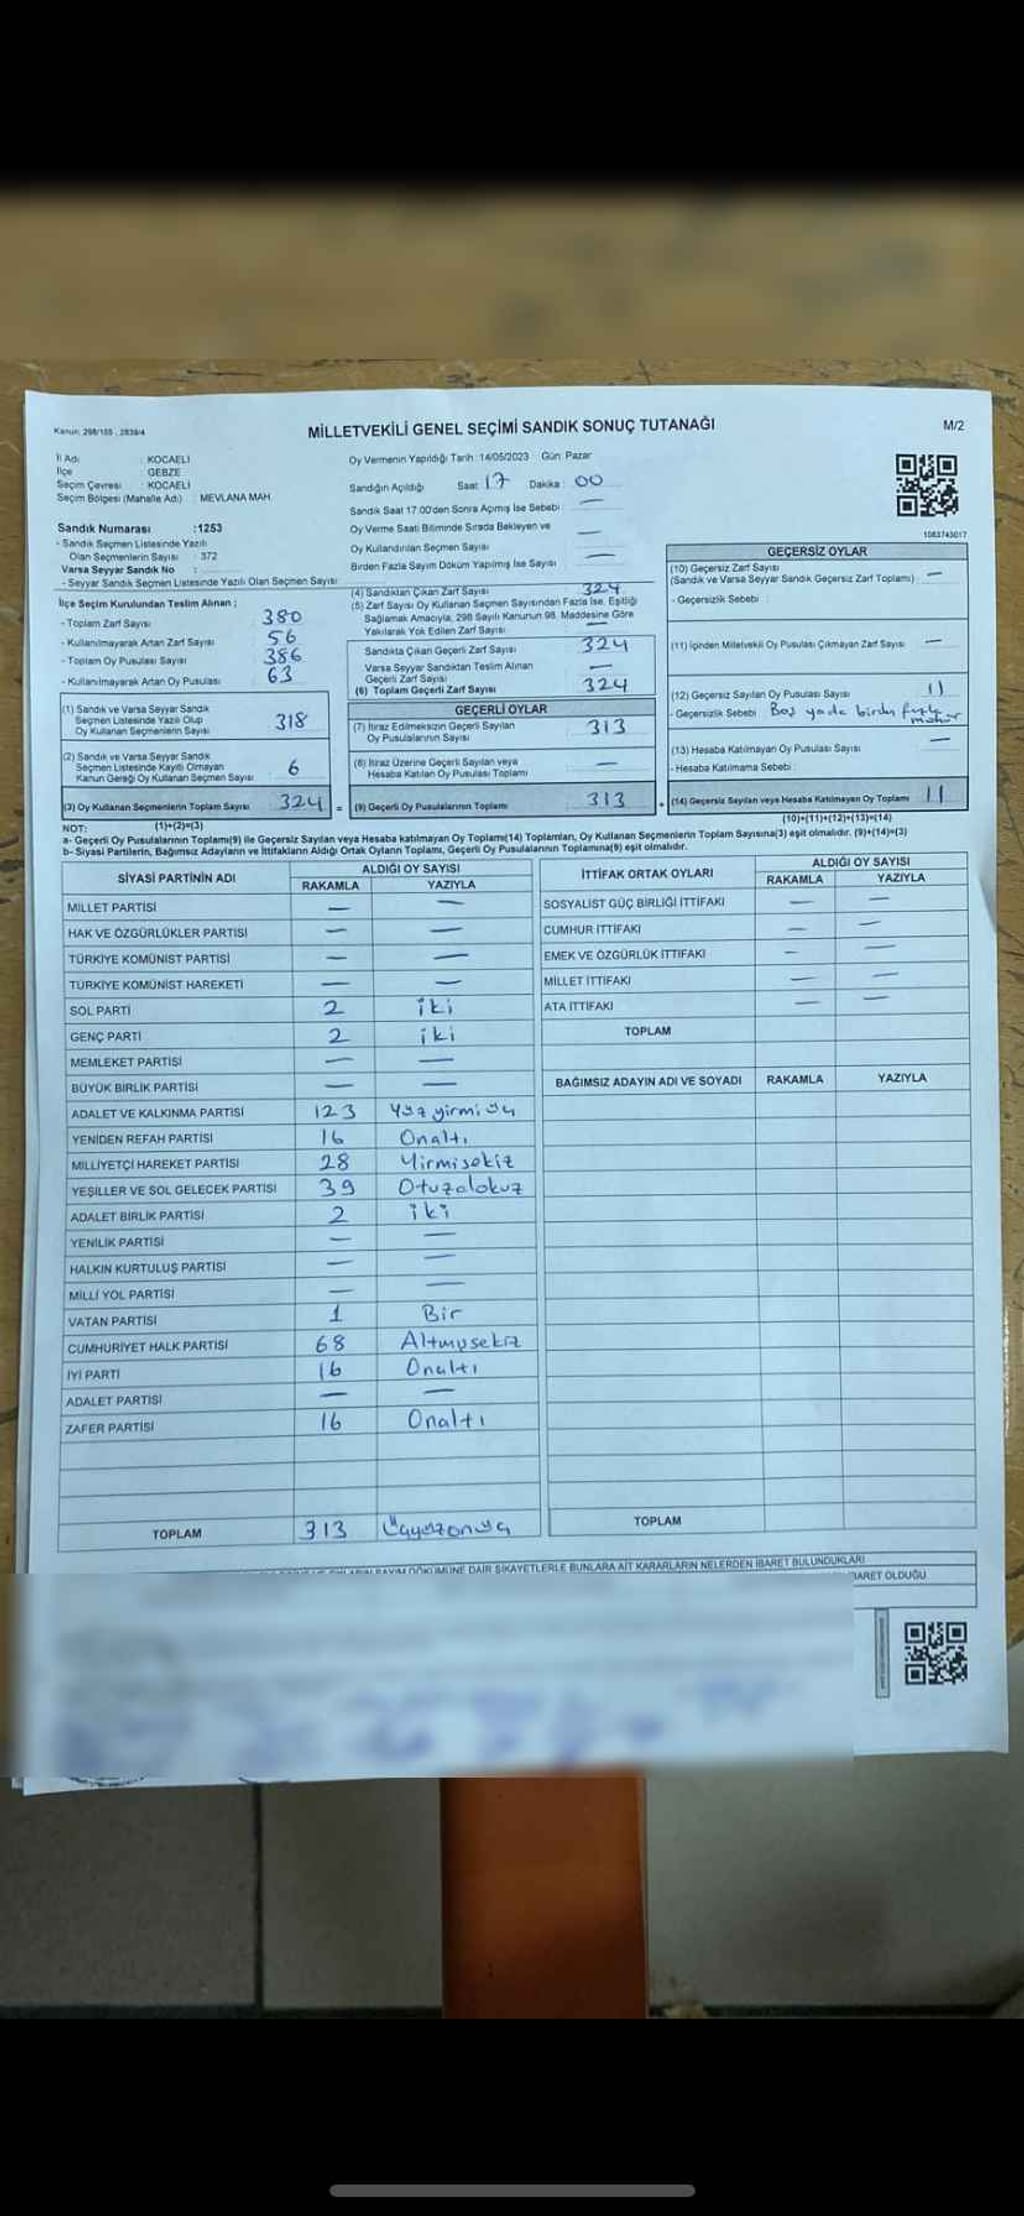 Kanun: 298/105 , 2839/4
MİLLETVEKİLİ GENEL SEÇİMİ SANDIK SONUÇ TUTANAĞI
M/2
İl Adı : KOCAELİ
İlçe : GEBZE
Seçim Çevresi : KOCAELİ
Seçim Bölgesi (Mahalle Adı) : MEVLANA MAH.
Sandık Numarası :1253
- Sandık Seçmen Listesinde Yazılı
Olan Seçmenlerin Sayısı : 372
Varsa Seyyar Sandık No :
- Seyyar Sandık Seçmen Listesinde Yazılı Olan Seçmen Sayısı
İlçe Seçim Kurulundan Teslim Alınan ;
- Toplam Zarf Sayısı 380
- Kullanılmayarak Artan Zarf Sayısı 56
- Toplam Oy Pusulası Sayısı 386
- Kullanılmayarak Artan Oy Pusulası 63
(1) Sandık ve Varsa Seyyar Sandık
Seçmen Listesinde Yazılı Olup
Oy Kullanan Seçmenlerin Sayısı 318
(2) Sandık ve Varsa Seyyar Sandık
Seçmen Listesinde Kayıtlı Olmayan
Kanun Gereği Oy Kullanan Seçmen Sayısı 6
(3) Oy Kullanan Seçmenlerin Toplam Sayısı 324 =
(1)+(2)=(3)
Oy Vermenin Yapıldığı Tarih : 14/05/2023 Gün: Pazar
Sandığın Açıldığı Saat 17 Dakika : 00
Sandık Saat 17.00'den Sonra Açımış İse Sebebi —
Oy Verme Saati Bitiminde Sırada Bekleyen ve
Oy Kullandırılan Seçmen Sayısı —
Birden Fazla Sayım Döküm Yapılmış İse Sayısı —
(4) Sandıktan Çıkan Zarf Sayısı 324
(5) Zarf Sayısı Oy Kullanan Seçmen Sayısından Fazla İse, Eşitliği
Sağlamak Amacıyla, 298 Sayılı Kanunun 98. Maddesine Göre
Yakılarak Yok Edilen Zarf Sayısı —
Sandıkta Çıkan Geçerli Zarf Sayısı 324
Varsa Seyyar Sandıktan Teslim Alınan
Geçerli Zarf Sayısı —
(6) Toplam Geçerli Zarf Sayısı 324
GEÇERLİ OYLAR
(7) İtiraz Edilmeksizin Geçerli Sayılan
Oy Pusulalarının Sayısı 313
(8) İtiraz Üzerine Geçerli Sayılan veya
Hesaba Katılan Oy Pusulası Toplamı —
(9) Geçerli Oy Pusulalarının Toplamı 313 +
1083743017
GEÇERSİZ OYLAR
(10) Geçersiz Zarf Sayısı
(Sandık ve Varsa Seyyar Sandık Geçersiz Zarf Toplamı) —
- Geçersizlik Sebebi :
(11) İçinden Milletvekili Oy Pusulası Çıkmayan Zarf Sayısı —
(12) Geçersiz Sayılan Oy Pusulası Sayısı 11
- Geçersizlik Sebebi Boş yada birden fazla
mühür
(13) Hesaba Katılmayan Oy Pusulası Sayısı —
- Hesaba Katılmama Sebebi :
(14) Geçersiz Sayılan veya Hesaba Katılmayan Oy Toplamı 11
(10)+(11)+(12)+(13)=(14)
NOT:
a- Geçerli Oy Pusulalarının Toplamı(9) ile Geçersiz Sayılan veya Hesaba katılmayan Oy Toplamı(14) Toplamları, Oy Kullanan Seçmenlerin Toplam Sayısına(3) eşit olmalıdır. (9)+(14)=(3)
b- Siyasi Partilerin, Bağımsız Adayların ve İttifakların Aldığı Ortak Oyların Toplamı, Geçerli Oy Pusulalarının Toplamına(9) eşit olmalıdır.
SİYASİ PARTİNİN ADI ALDIĞI OY SAYISI
RAKAMLA YAZIYLA
MİLLET PARTİSİ — —
HAK VE ÖZGÜRLÜKLER PARTİSİ — —
TÜRKİYE KOMÜNİST PARTİSİ — —
TÜRKİYE KOMÜNİST HAREKETİ — —
SOL PARTİ 2 iki
GENÇ PARTİ 2 iki
MEMLEKET PARTİSİ — —
BÜYÜK BİRLİK PARTİSİ — —
ADALET VE KALKINMA PARTİSİ 123 Yüz yirmi üç
YENİDEN REFAH PARTİSİ 16 Onaltı
MİLLİYETÇİ HAREKET PARTİSİ 28 Yirmisekiz
YEŞİLLER VE SOL GELECEK PARTİSİ 39 Otuzdokuz
ADALET BİRLİK PARTİSİ 2 iki
YENİLİK PARTİSİ — —
HALKIN KURTULUŞ PARTİSİ — —
MİLLİ YOL PARTİSİ — —
VATAN PARTİSİ 1 Bir
CUMHURİYET HALK PARTİSİ 68 Altmışsekiz
İYİ PARTİ 16 Onaltı
ADALET PARTİSİ — —
ZAFER PARTİSİ 16 Onaltı
TOPLAM 313 Üçyüzonüç
İTTİFAK ORTAK OYLARI ALDIĞI OY SAYISI
RAKAMLA YAZIYLA
SOSYALİST GÜÇ BİRLİĞİ İTTİFAKI — —
CUMHUR İTTİFAKI — —
EMEK VE ÖZGÜRLÜK İTTİFAKI — —
MİLLET İTTİFAKI — —
ATA İTTİFAKI — —
TOPLAM
BAĞIMSIZ ADAYIN ADI VE SOYADI RAKAMLA YAZIYLA
TOPLAM
SAYIM DÖKÜMÜNE DAİR ŞİKAYETLERLE BUNLARA AİT KARARLARIN NELERDEN İBARET BULUNDUKLARI
İBARET OLDUĞU